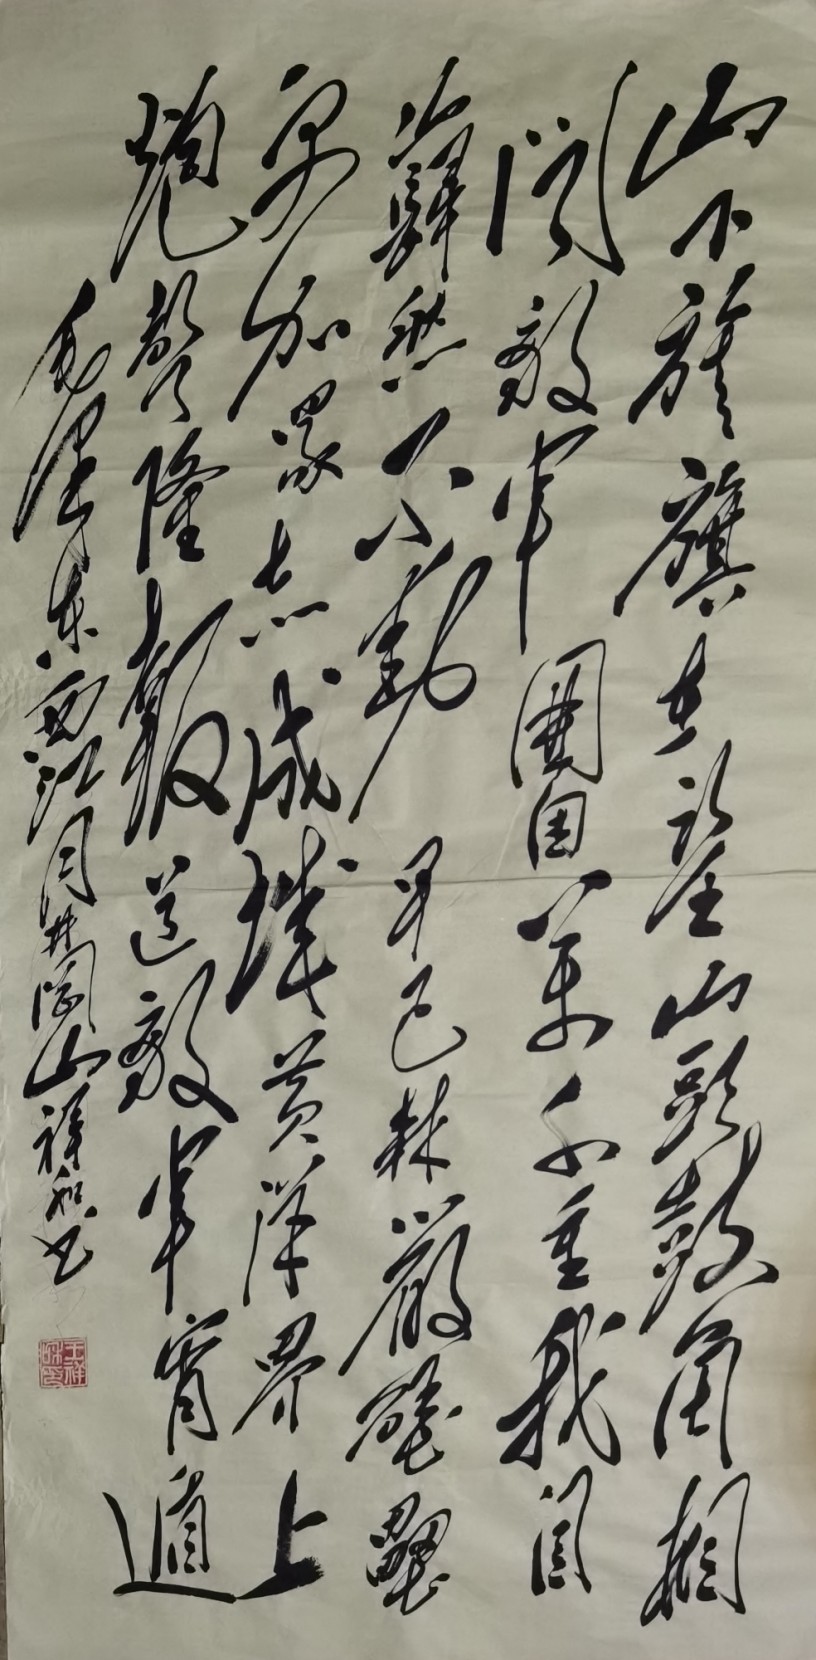 山下旌旗在望山头鼓角相
闻敌军围困万千重我自
岿然不动早已森严壁垒
更加众志成城黄洋界上
炮声隆报道敌军宵遁
毛泽东西江月井岗山祥和书
王祥和印